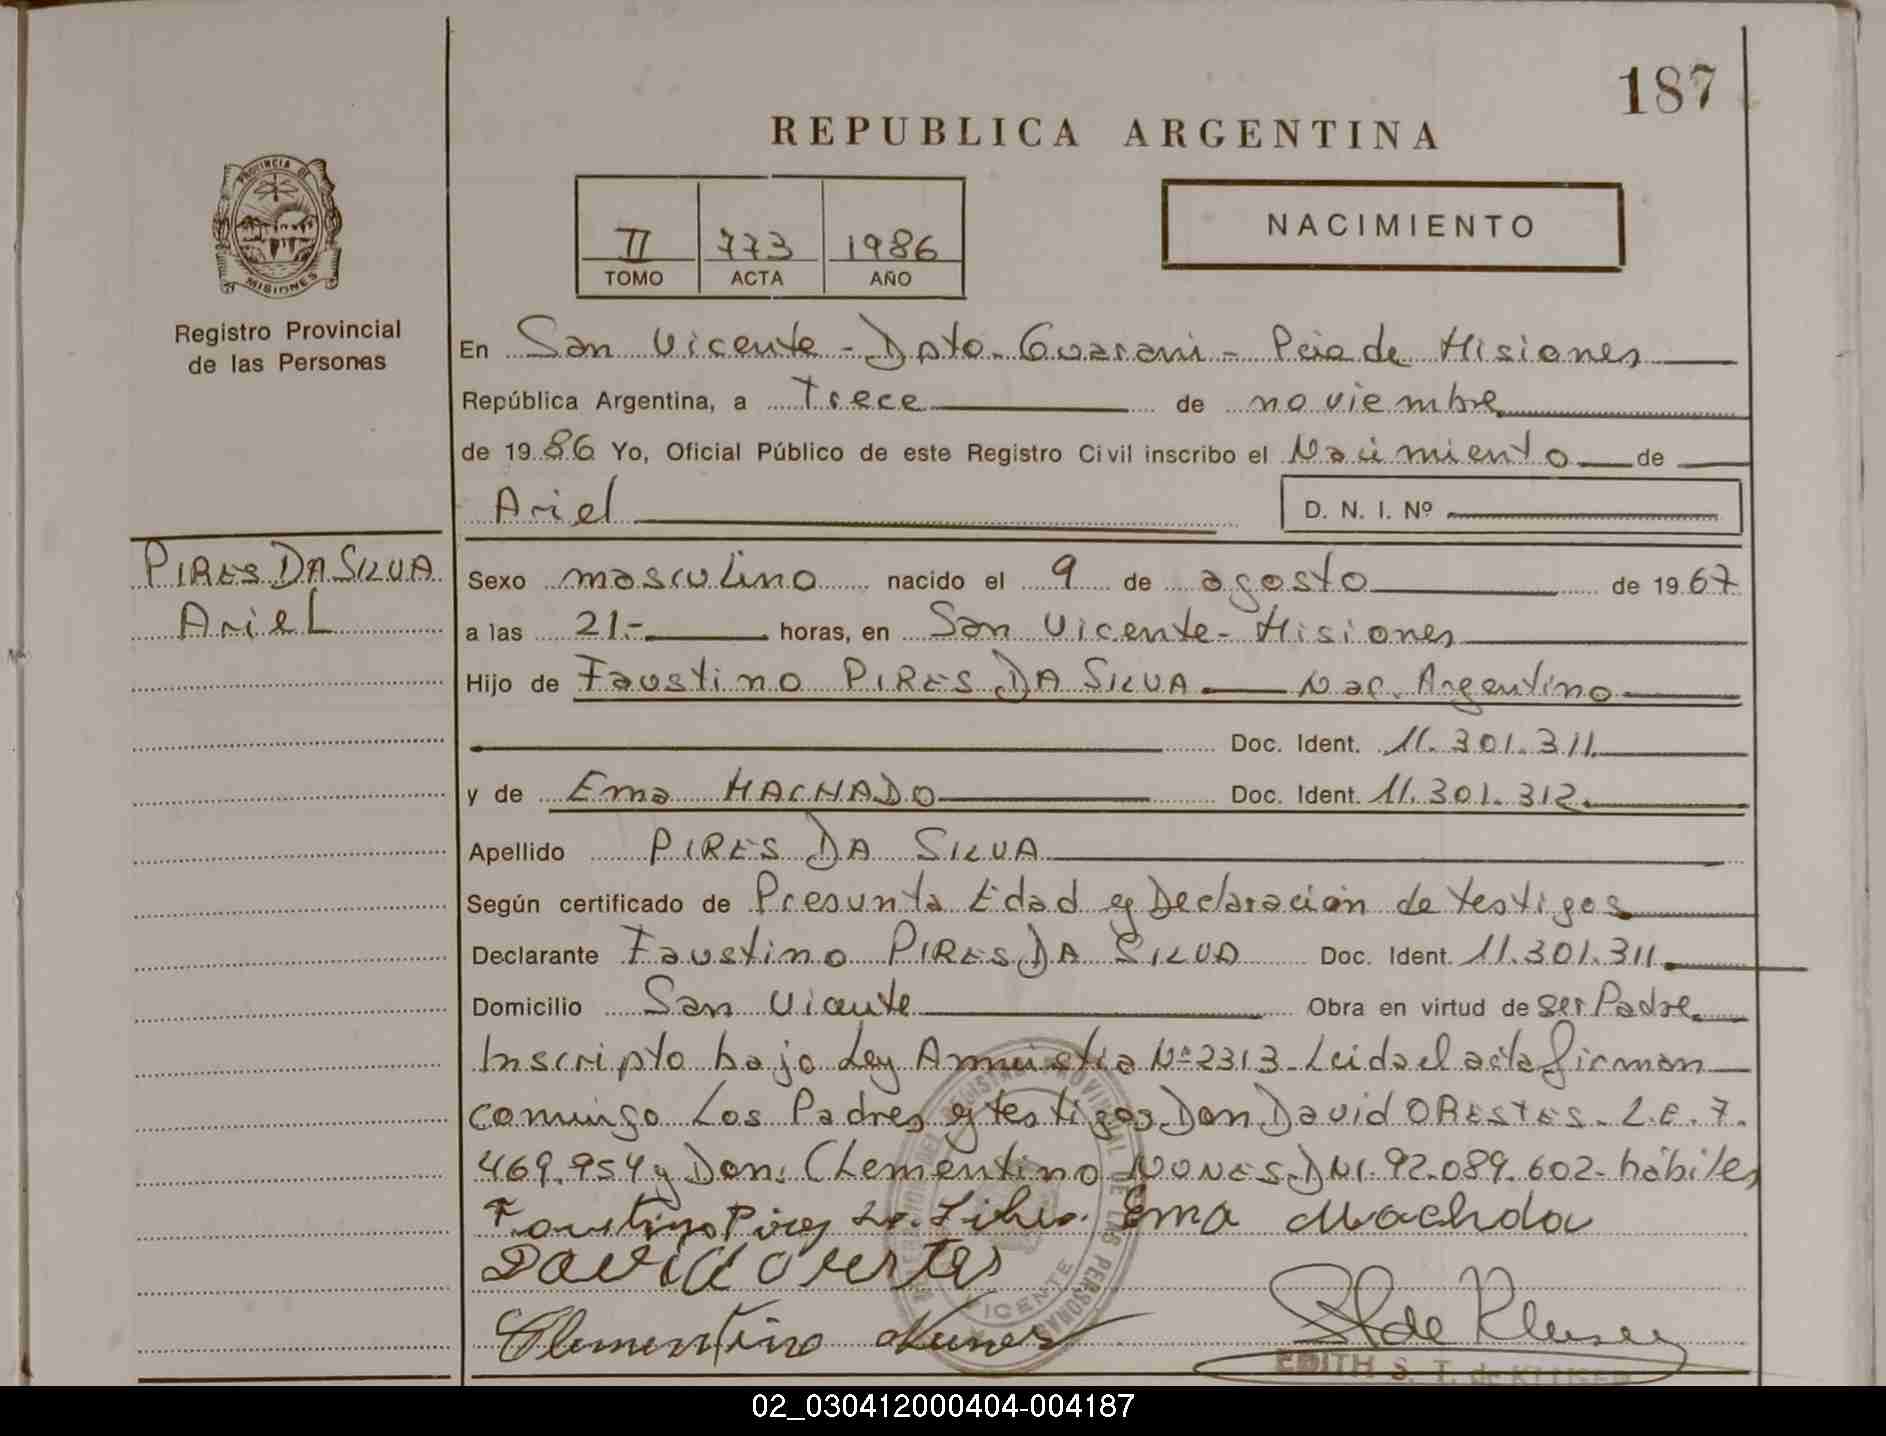 187
REPUBLICA ARGENTINA
PROVINCIA DE
MISIONES
Registro Provincial
de las Personas
II 773 1986
TOMO ACTA AÑO
NACIMIENTO
En San Vicente - Dpto. Guarani - Pcia de Misiones
República Argentina, a Trece de noviembre
de 19 86 Yo, Oficial Público de este Registro Civil inscribo el Nacimiento de
Ariel D. N. I. Nº
PIRES DA SILVA
Ariel
Sexo masculino nacido el 9 de agosto de 19 67
a las 21.- horas, en San Vicente - Misiones
Hijo de Faustino PIRES DA SILVA Nac. Argentino
Doc. Ident. 11.301.311.
y de Ema MACHADO Doc. Ident. 11.301.312.
Apellido PIRES DA SILVA
Según certificado de Presunta Edad y Declaración de testigos
Declarante Faustino PIRES DA SILVA Doc. Ident. 11.301.311.
Domicilio San Vicente Obra en virtud de ser Padre.
Inscripto bajo Ley Amnistia Nº 2313 - Leida el acta firman
conmigo Los Padres y testigos Don David ORESTES - L.E. 7.
469.954 y Don: Clementino NUNES DNI. 92.089.602 - hábiles
Faustino Pires Ema Machado
David orestes
Clementino Nunes
S T de Kluser
EDITH S. T. de KLUSER
VICENTE
DE LAS PERSONAS
02_030412000404-004187